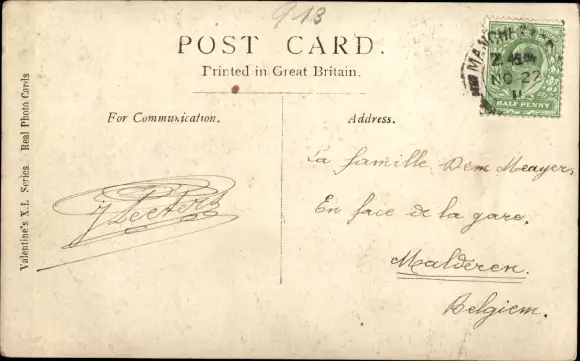 913
POST CARD.
Printed in Great Britain.
MANCHESTER
2.45 PM
NO 22
11
HALF PENNY
For Communication.
Address.
Valentine's X.L Series. Real Photo Cards
J Peeters
La famille De Meayer,
En face de la gare.
Maldéren.
Belgiem.